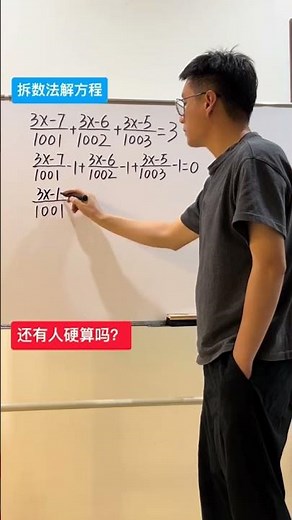 拆数法解方程
(3x-7)/1001 + (3x-6)/1002 + (3x-5)/1003 = 3
(3x-7)/1001 -1 + (3x-6)/1002 -1 + (3x-5)/1003 -1 = 0
(3x-1)/1001
还有人硬算吗?